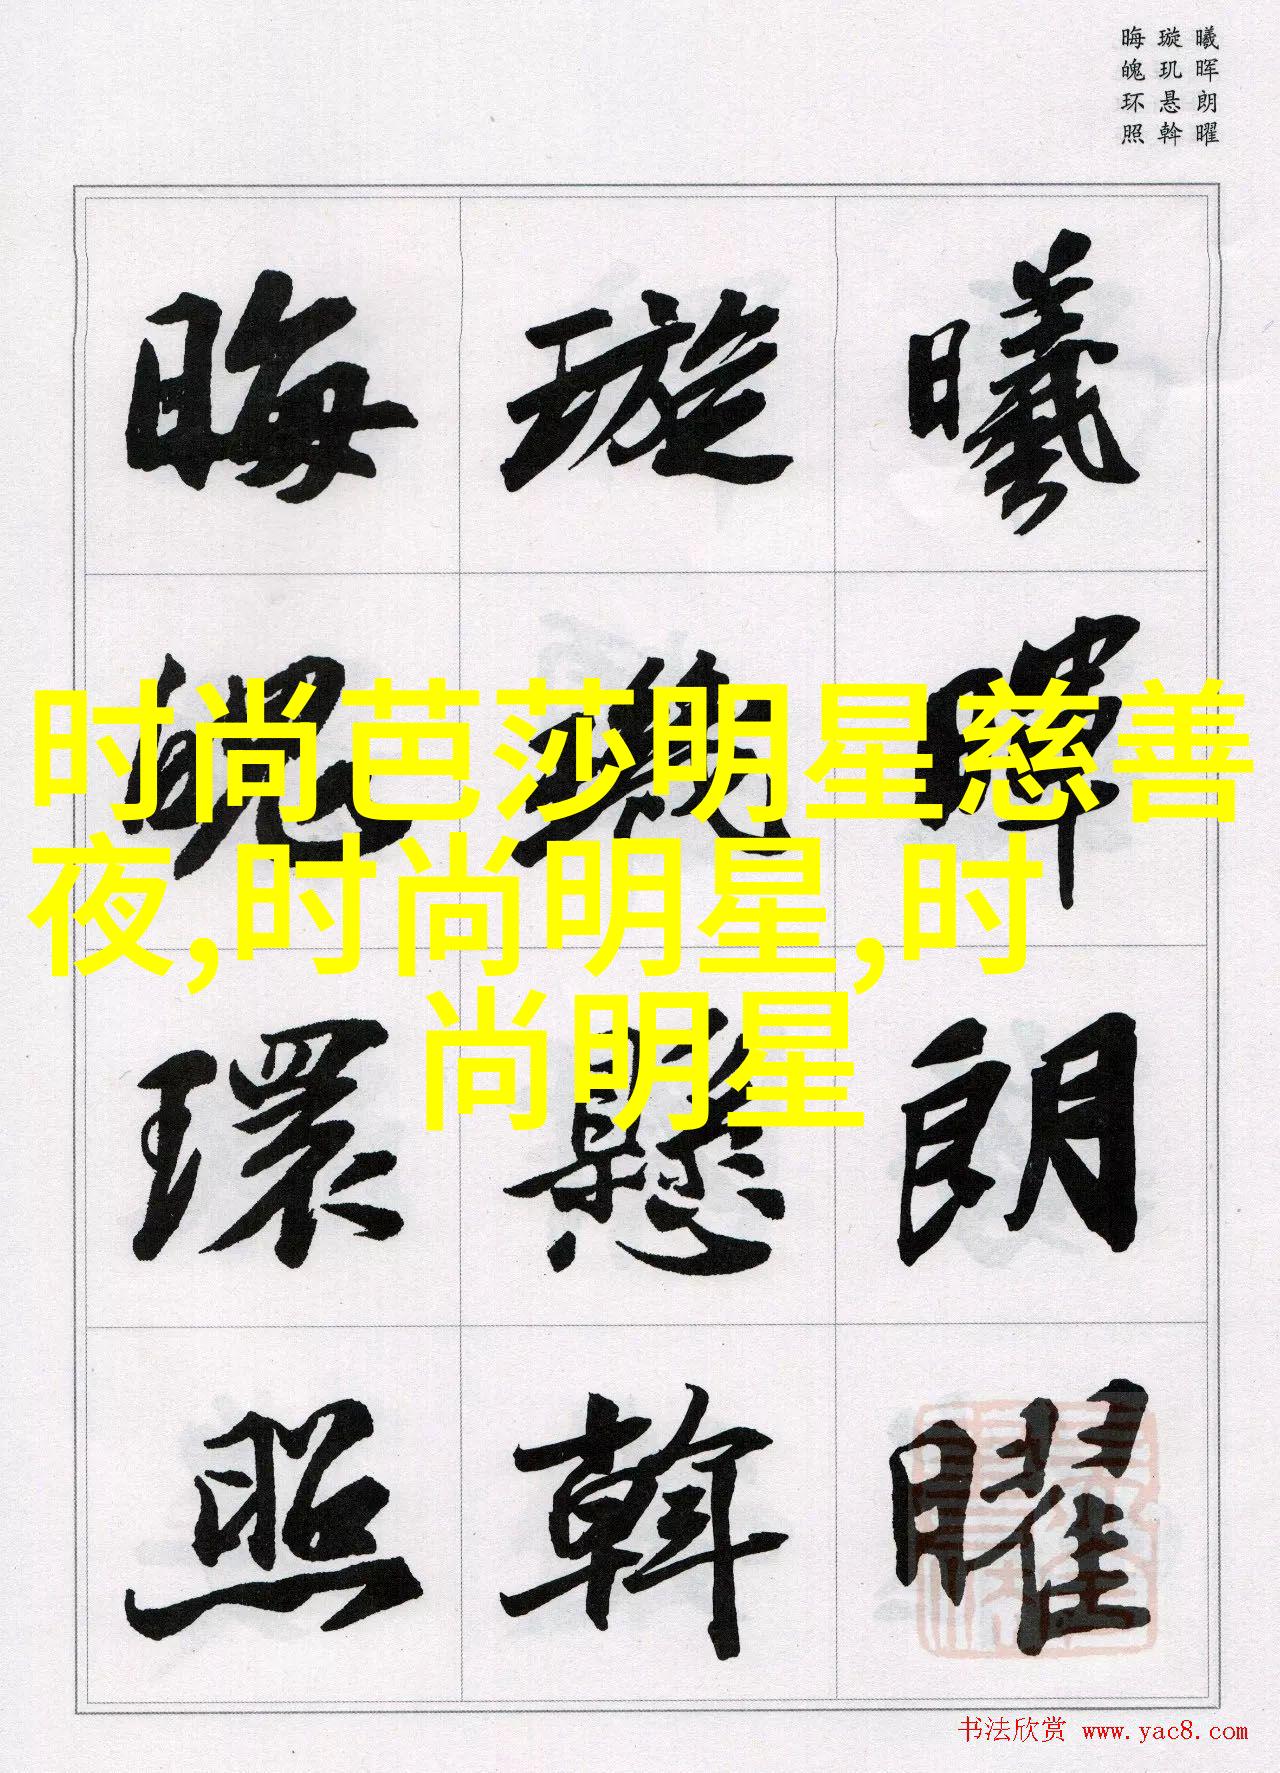 曦晖朗曜
璇玑悬斡
晦魄环照
曦暉朗曜
璇璣懸斡
晦魄環照
时尚芭莎明星慈善
夜,时尚明星,时
尚明星
书法欣赏 www.yac8.com